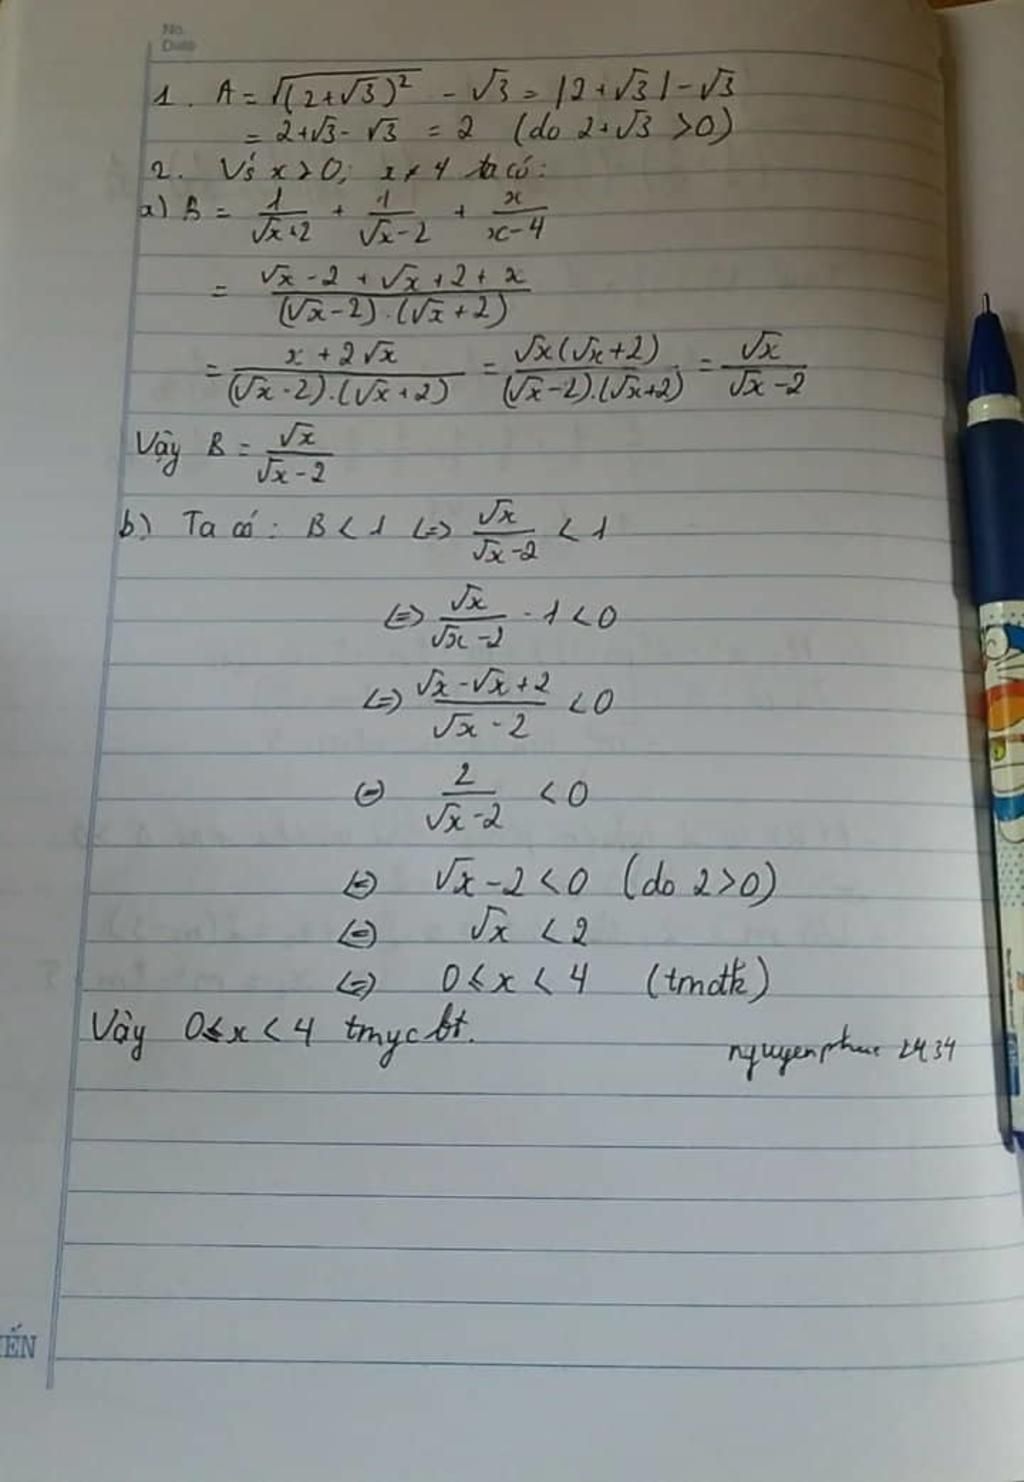 No.
Date
1. A = √(2+√3)² - √3 = |2+√3| - √3
= 2+√3 - √3 = 2 (do 2+√3 >0)
2. Vs x > 0; x ≠ 4 ta có:
a) B = 1/(√x+2) + 1/(√x-2) + x/(x-4)
= (√x-2+√x+2+x)/((√x-2).(√x+2))
= (x+2√x)/((√x-2).(√x+2)) = (√x(√x+2))/((√x-2).(√x+2)) = √x/(√x-2)
Vậy B = √x/(√x-2)
b) Ta có: B < 1 (=) √x/(√x-2) < 1
(=) √x/(√x-2) - 1 < 0
(=) (√x-√x+2)/(√x-2) < 0
(=) 2/(√x-2) < 0
(=) √x-2 < 0 (do 2>0)
(=) √x < 2
(=) 0 ≤ x < 4 (tmđk)
Vậy 0 ≤ x < 4 tmycbt.
nguyenphuc 2434
ẾN